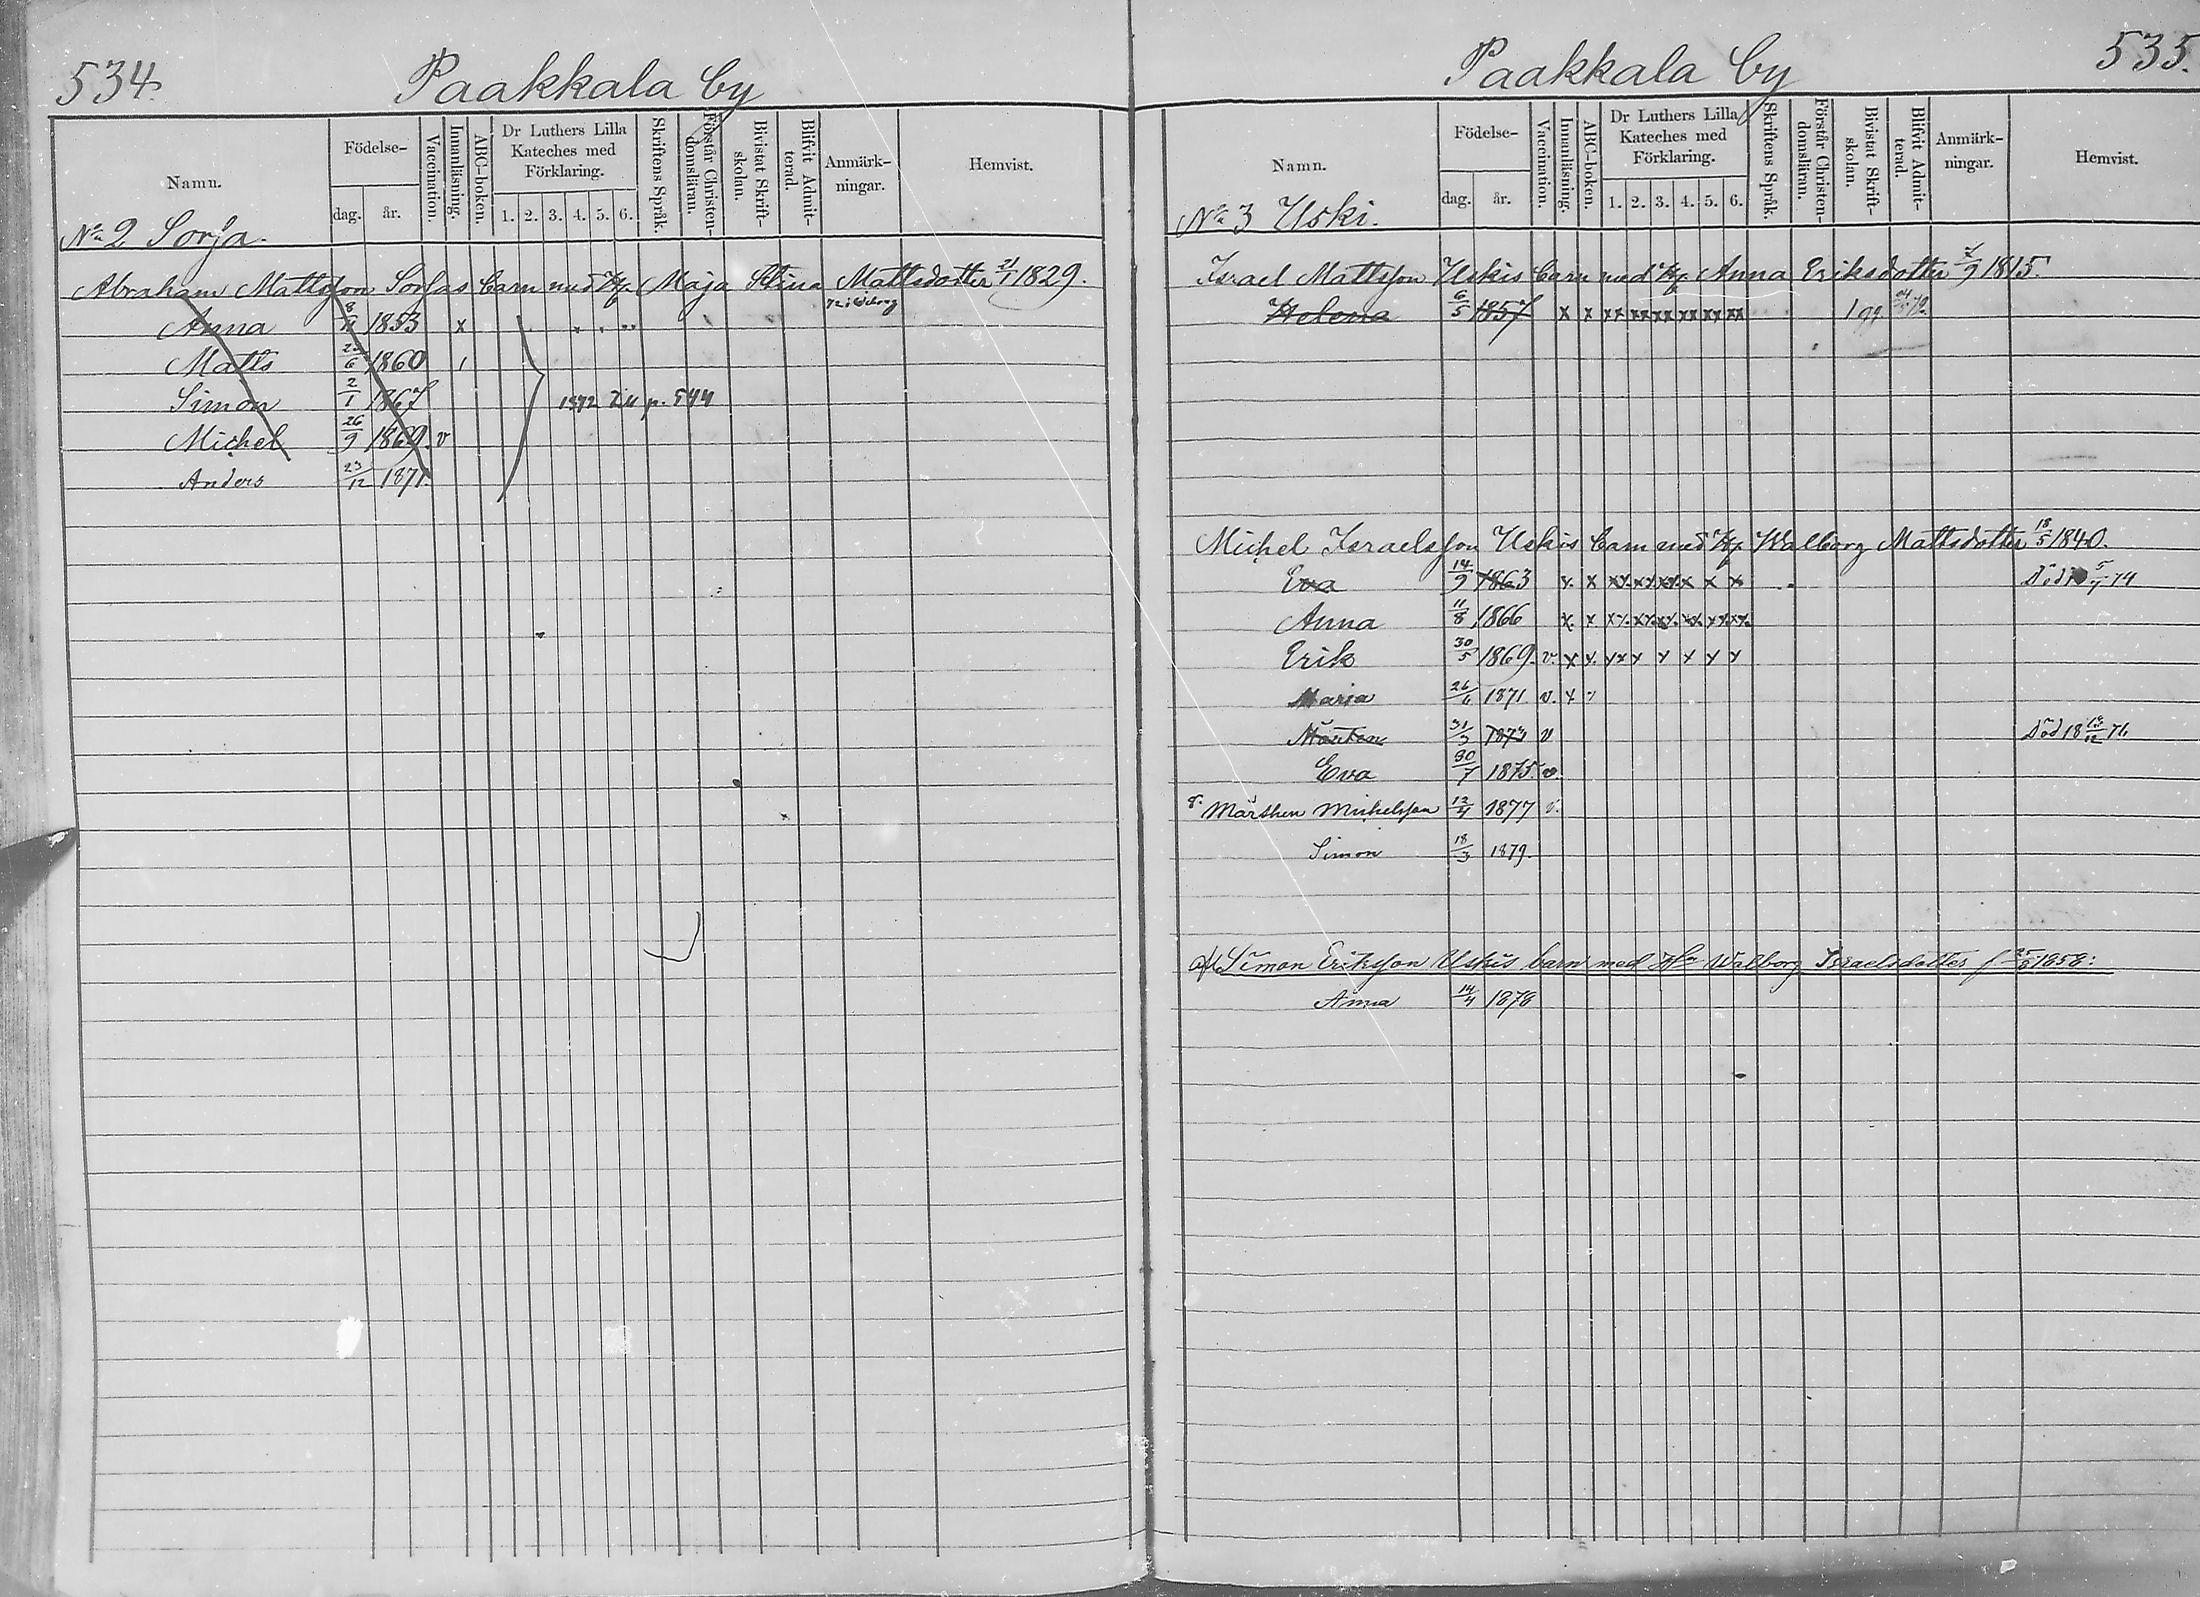 534.
Paakkala by
Namn.
Födelse-
dag. år.
Vaccination.
Innanläsning.
ABC-boken.
Dr Luthers Lilla
Kateches med
Förklaring.
1. 2. 3. 4. 5. 6.
Skriftens Språk.
Förstår Christen-
domsläran.
Bivistat Skrift-
skolan.
Blifvit Admit-
terad.
Anmärk-
ningar.
Hemvist.
No 2 Sorsa.
Abraham Mattsson Sorsas barn med H. Maja Stina Mattsdotter 21/1 1829.
Anna 1853 x
Matts 6 1860
Simon 2/1 1867 1872 p. 544
Michel 26/9 1869. v
Anders 23/12 1871.
535.
Paakkala by
Namn.
Födelse-
dag. år.
Vaccination.
Innanläsning.
ABC-boken.
Dr Luthers Lilla
Kateches med
Förklaring.
1. 2. 3. 4. 5. 6.
Skriftens Språk.
Förstår Christen-
domsläran.
Bivistat Skrift-
skolan.
Blifvit Admit-
terad.
Anmärk-
ningar.
Hemvist.
No 3 Uski.
Israel Mattsson Uskis barn med H. Anna Eriksdotter 7/9 1815.
Helena 6/5 1857 x x xx xx xx xx xx xx
Michel Israelsson Uskis barn med H. Walborg Mattsdotter 18/5 1840.
Eva 14/9 1863 x. x xx. xx. xx. x x x Död 5/7 74
Anna 11/8 1866 x. x xx. xx. xx. xx. xx. xx.
Erik 30/5 1869. v. x x. xxx x x x x
Maria 26/6 1871 v. x
Mårten 31/3 v Död 18 12 76
Eva 30/7 1875. v.
Mårthen Michelsson 12/4 1877 v.
Simon 18/3 1879.
Simon Eriksson Uskis barn med Walborg Israelsdotter f. 1858:
Anna 14/4 1878